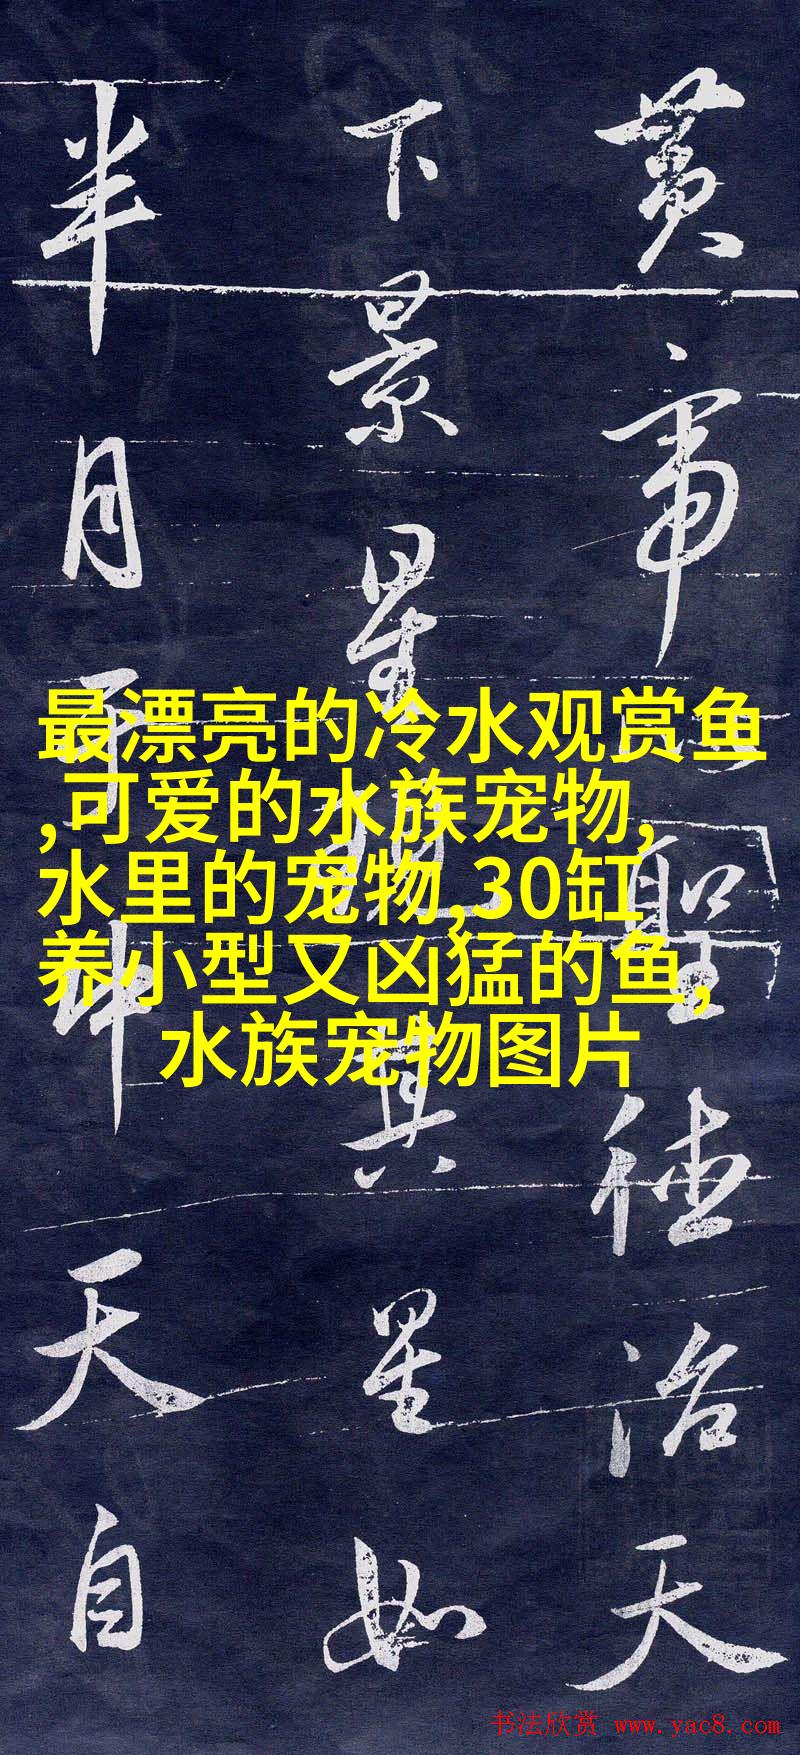 黄帝聖德治天
下景星其星如
半月天自
最漂亮的冷水观赏鱼
,可爱的水族宠物,
水里的宠物,30缸
养小型又凶猛的鱼,
水族宠物图片
书法欣赏 www.yac8.com